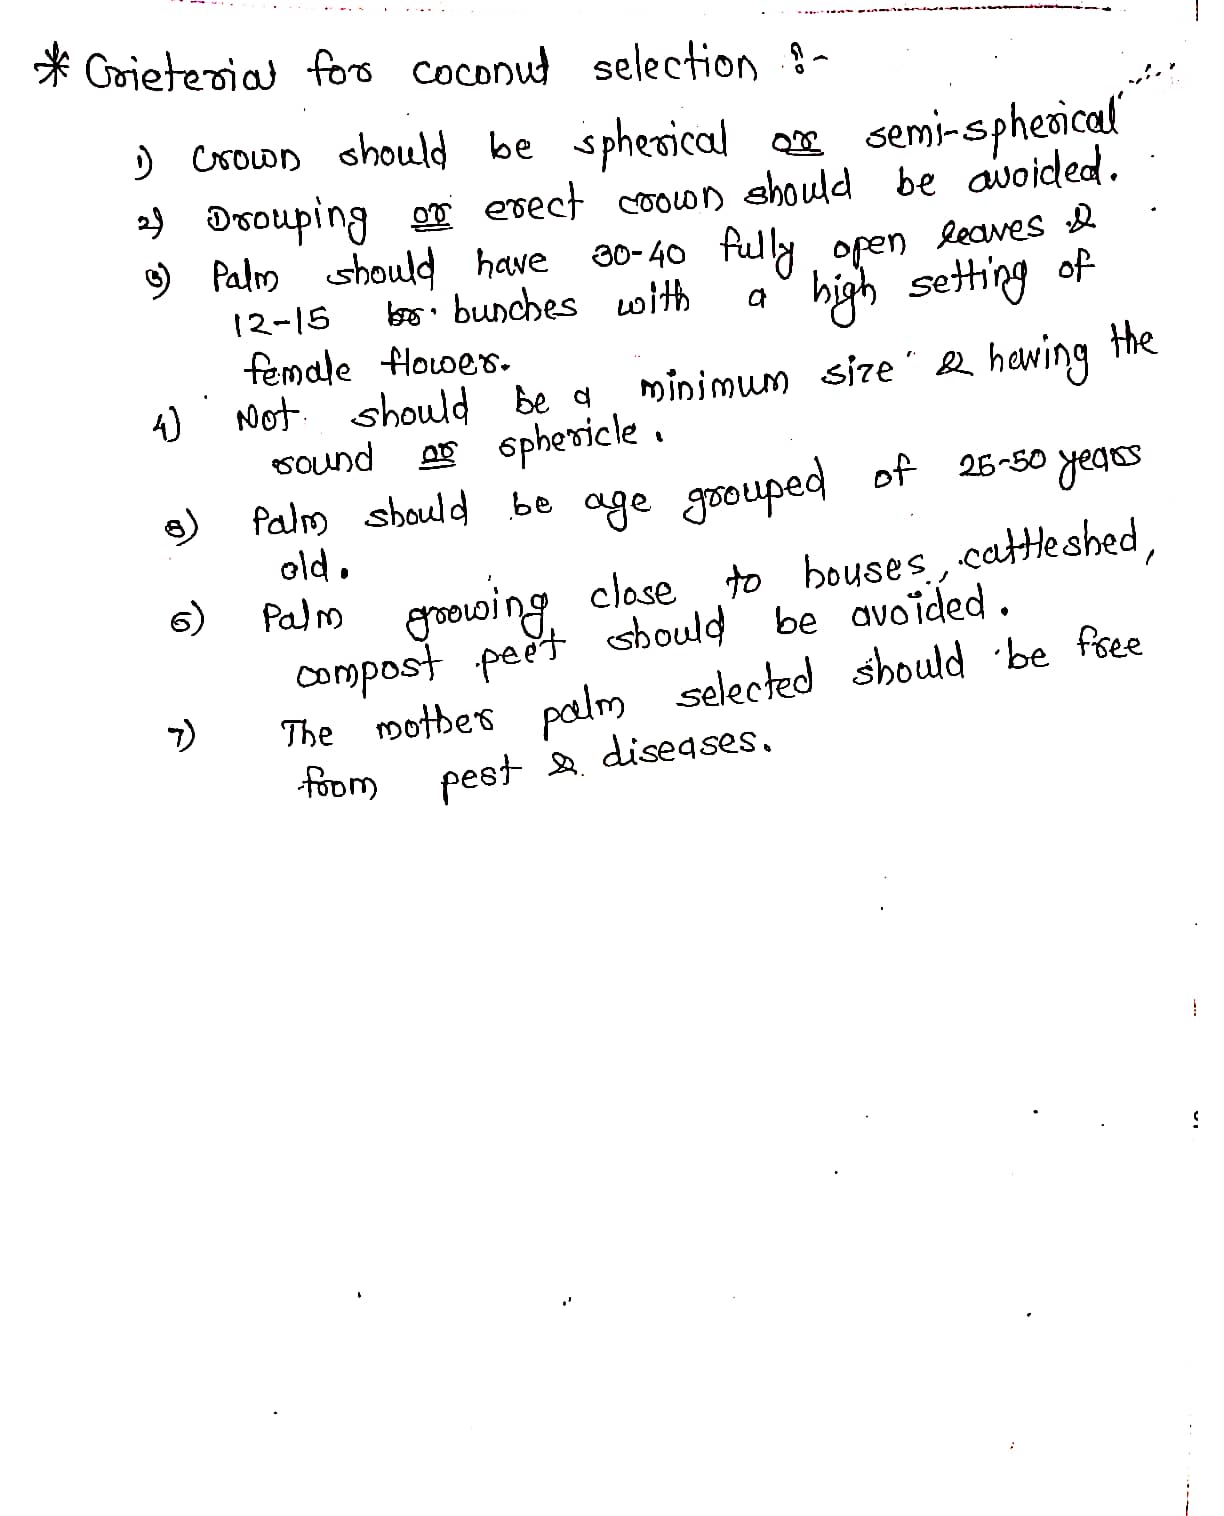 * Crieterial for coconut selection :-
1) Crown should be spherical or semi-spherical
2) Drouping or erect crown should be avoided.
3) Palm should have 30-40 fully open leaves &
12-15 bunches with a high setting of
female flower.
4) Not should be a minimum size & hewing the
round or sphericle.
5) Palm should be age grouped of 25-50 years
old.
6) Palm growing close to houses, cattleshed,
compost peet should be avoided.
7) The mother palm selected should be free
from pest & diseases.